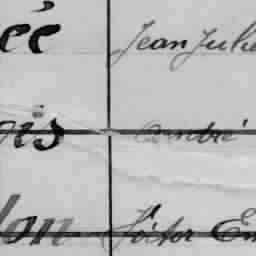 ée Jean Jule
ois André
lon Victor Em